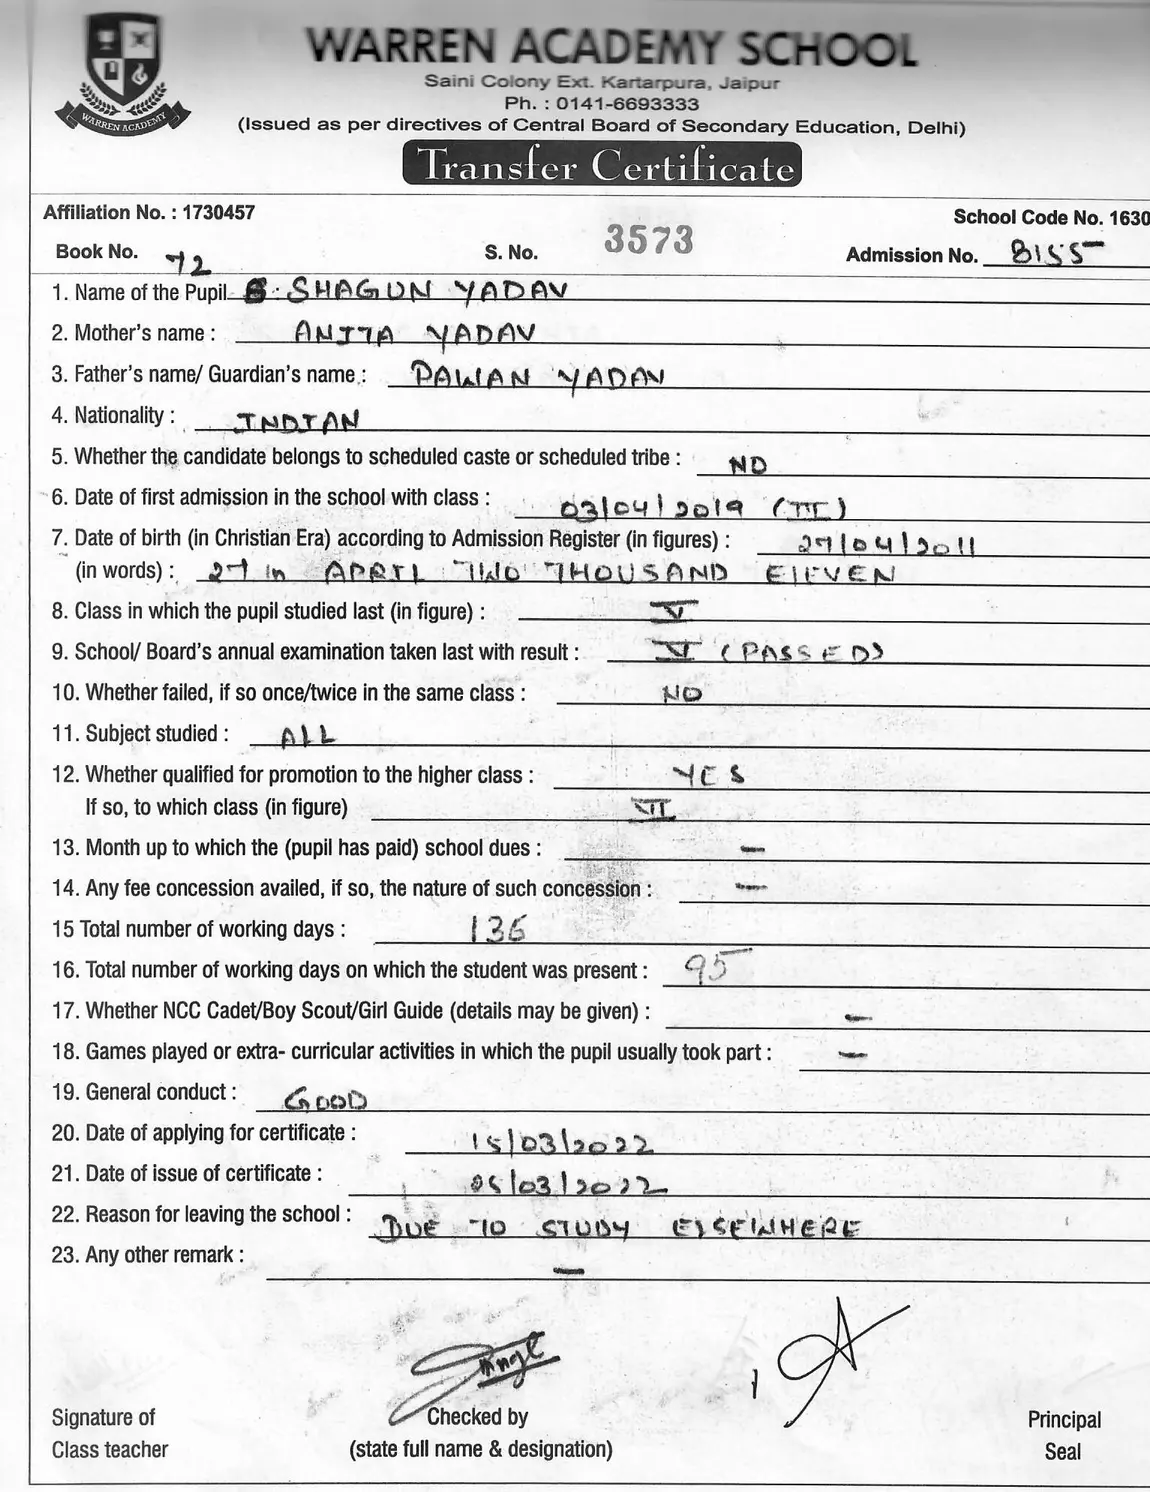 WARREN ACADEMY
WARREN ACADEMY SCHOOL
Saini Colony Ext. Kartarpura, Jaipur
Ph. : 0141-6693333
(Issued as per directives of Central Board of Secondary Education, Delhi)
Transfer Certificate
Affiliation No. : 1730457 School Code No. 1630
Book No. 72 S. No. 3573 Admission No. 8155
1. Name of the Pupil : SHAGUN YADAV
2. Mother's name : ANITA YADAV
3. Father's name/ Guardian's name : PAWAN YADAV
4. Nationality : INDIAN
5. Whether the candidate belongs to scheduled caste or scheduled tribe : NO
6. Date of first admission in the school with class : 03/04/2019 (III)
7. Date of birth (in Christian Era) according to Admission Register (in figures) : 27/04/2011
(in words) : 27 in APRIL TWO THOUSAND ELEVEN
8. Class in which the pupil studied last (in figure) : V
9. School/ Board's annual examination taken last with result : VI (PASSED)
10. Whether failed, if so once/twice in the same class : NO
11. Subject studied : ALL
12. Whether qualified for promotion to the higher class : YES
If so, to which class (in figure) VII
13. Month up to which the (pupil has paid) school dues : —
14. Any fee concession availed, if so, the nature of such concession : —
15 Total number of working days : 136
16. Total number of working days on which the student was present : 95
17. Whether NCC Cadet/Boy Scout/Girl Guide (details may be given) : —
18. Games played or extra- curricular activities in which the pupil usually took part : —
19. General conduct : GOOD
20. Date of applying for certificate : 15/03/2022
21. Date of issue of certificate : /03/2022
22. Reason for leaving the school : DUE TO STUDY ELSEWHERE
23. Any other remark : —
Signature of Checked by Principal
Class teacher (state full name & designation) Seal